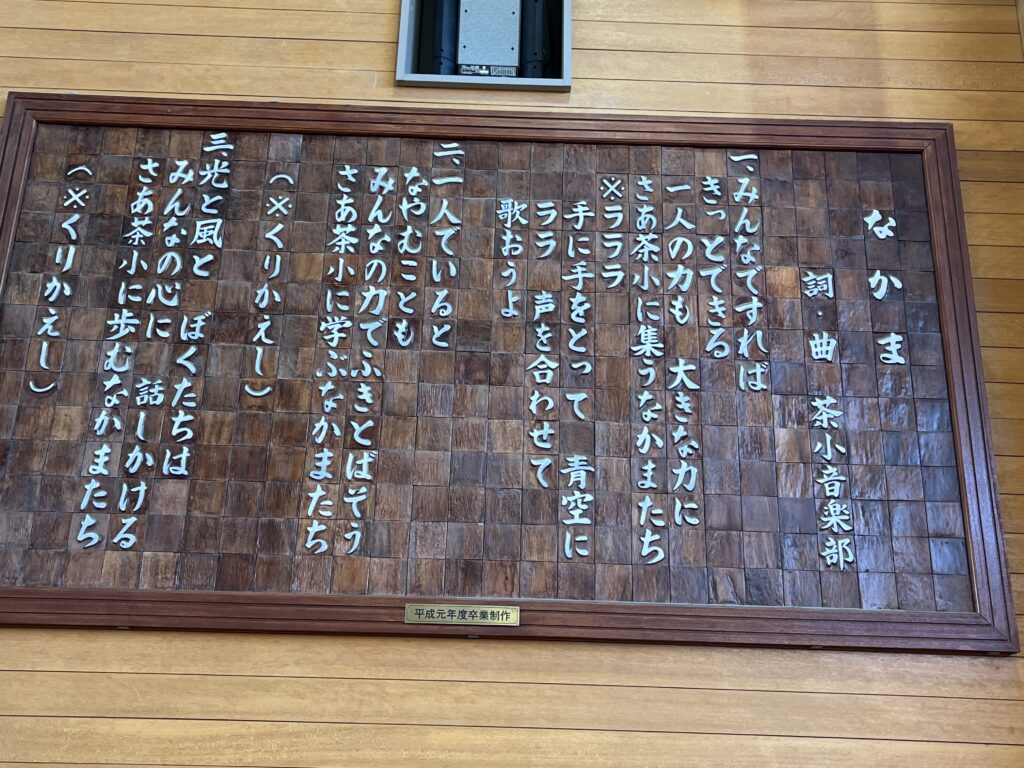 なかま
詞・曲　茶小音楽部
一、みんなですれば
きっとできる
一人の力も　大きな力に
さあ茶小に集うなかまたち
※ラララ
手に手をとって　青空に
ララ　声を合わせて
歌おうよ
二、一人でいると
なやむことも
みんなの力でふきとばそう
さあ茶小に学ぶなかまたち
（※くりかえし）
三、光と風と　ぼくたちは
みんなの心に　話しかける
さあ茶小に歩むなかまたち
（※くりかえし）
平成元年度卒業制作